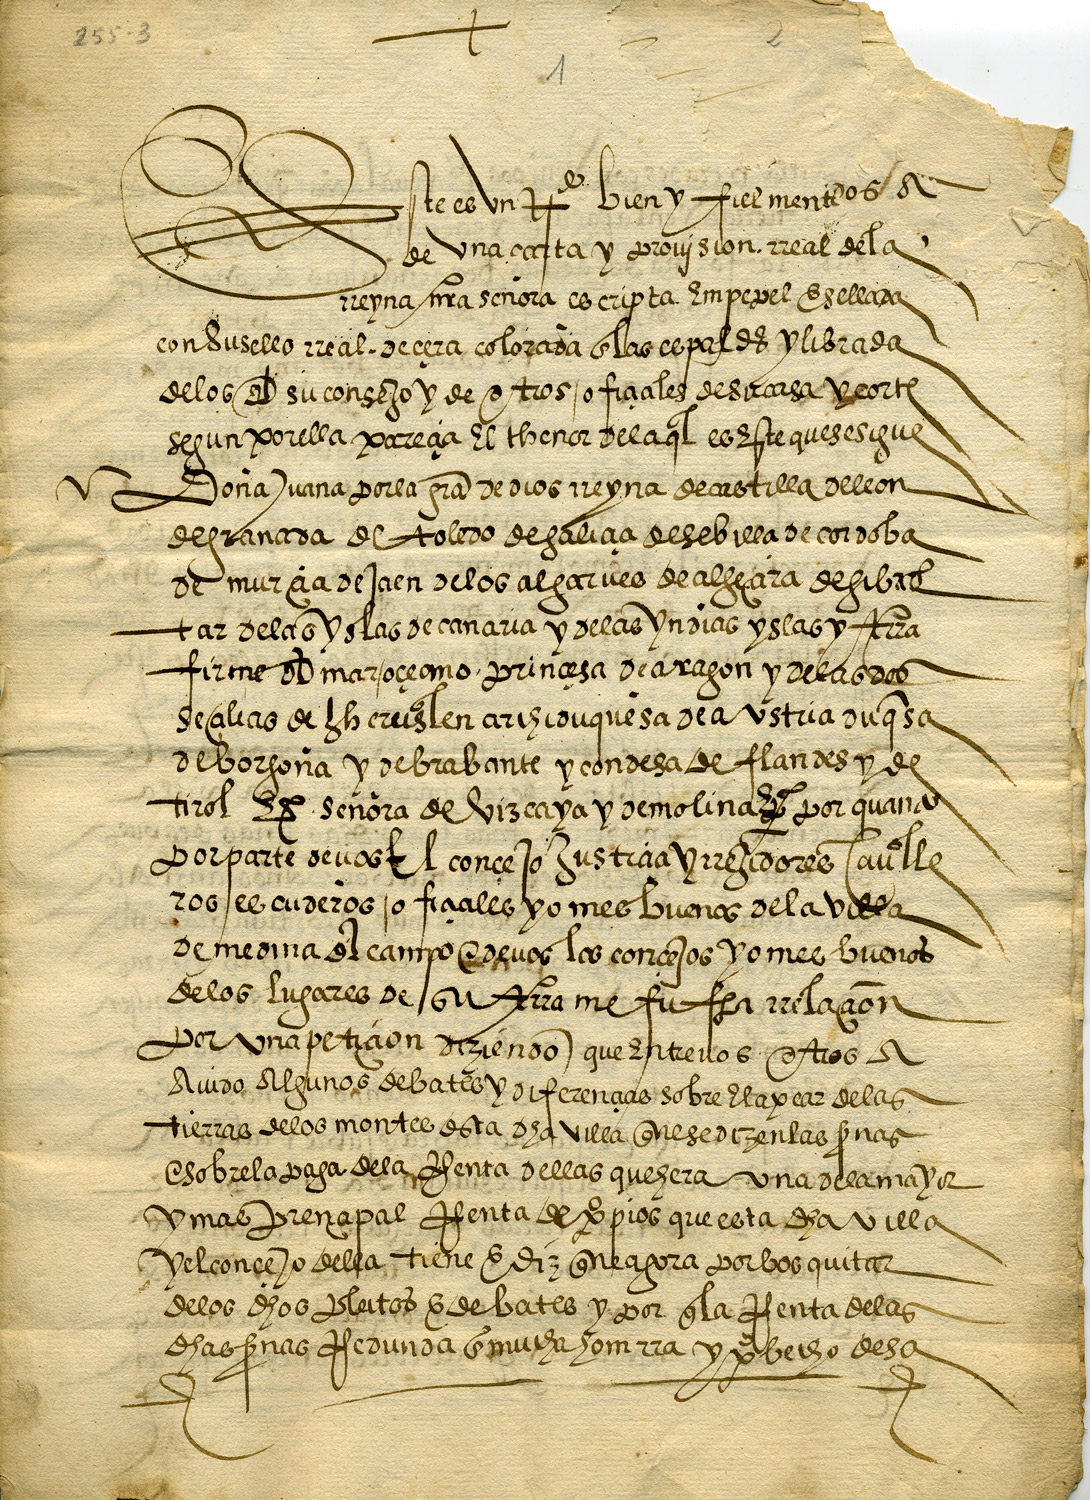 255-3
2
1
Este es un trº bien y fielmente os a
de una carta y provision rreal de la
rreyna nra señora escripta en pepel e sellada
con su sello rreal de cera colorada en las espaldas y librada
de los del su consejo y de otros oficiales de su casa y corte
segun por ella parecia el thenor de la ql es este que se sigue
Doña Juana por la gra de dios rreyna de castilla de leon
de granada de toledo de galizia de sebilla de cordoba
de murcia de jaen de los algarves de algezira de gibral
tar de las yslas de canaria y de las yndias yslas y trra
firme del mar oceano princesa de aragon y de las dos
secilias de iherusalen archiduquesa de austria duqsa
de borgoña y de brabante y condesa de flandes y de
tirol etc señora de vizcaya y de molina etc por quanto
por parte de vos el concejo justicia y rregidores caualle
ros escuderos oficiales y omes buenos de la villa
de medina del campo e de vos los concejos y omes buenos
de los lugares de su trra me fue fha rrelacion
por una peticion diziendo que entre vos otros a
auido algunos debates y diferencias sobre el apear de las
tierras de los montes desta dha villa que se dizen las
e sobre la paga de la Renta dellas que hera una de la mayor
y mas prencipal Renta de propios que esta dha villa
y el concejo della tiene e diz que agora por bos quitar
de los dhos pleitos e debates y por que la Renta de las
dhas Redunda en mucha honrra y probecho desa